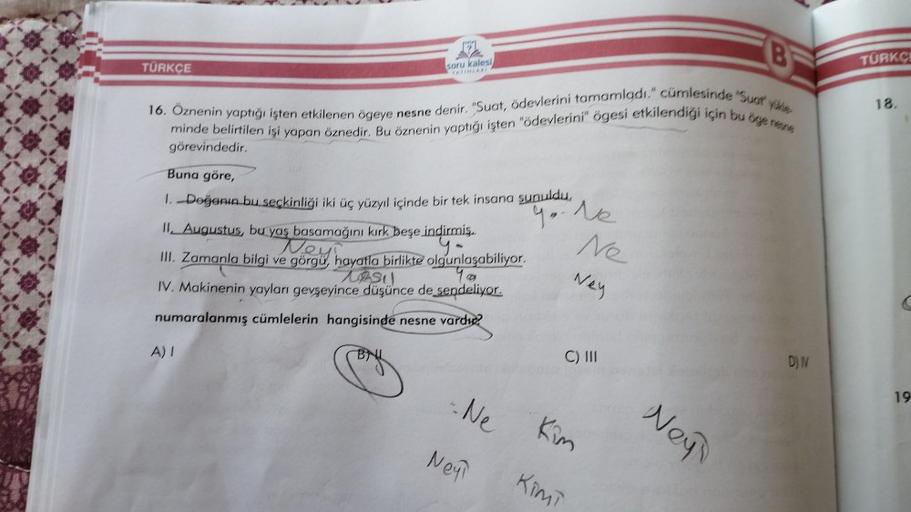 TÜRKÇE
soru kalesi
YAYINLARI
B
TÜRKÇE
16. Öznenin yaptığı işten etkilenen ögeye nesne denir. "Suat, ödevlerini tamamladı." cümlesinde "Suat" yükle-
minde belirtilen işi yapan öznedir. Bu öznenin yaptığı işten "ödevlerini" ögesi etkilendiği için bu öge nesne
görevindedir.
Buna göre,
I. Doğanın bu seçkinliği iki üç yüzyıl içinde bir tek insana sunuldu.
Yo. Ne
II. Augustus, bu yaş basamağını kırk beşe indirmiş.
Neyi
Ne
III. Zamanla bilgi ve görgü, hayatla birlikte olgunlaşabiliyor.
Nasıl
Ney
IV. Makinenin yayları gevşeyince düşünce de sendeliyor.
numaralanmış cümlelerin hangisinde nesne vardır?
A) I
B) II
C) III
D) IV
Ne Kim Neyi
Neyi Kimi
18.
19